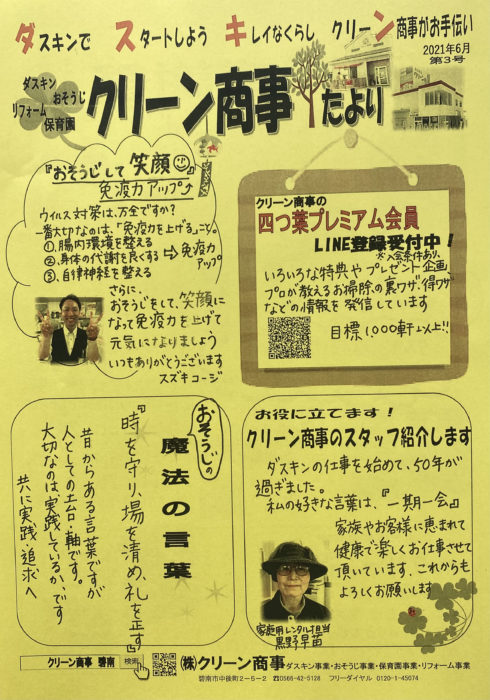 ダスキンで スタートしよう キレイなくらし クリーン商事がお手伝い
2021年6月
第3号
ダスキン
おそうじ
リフォーム
保育園
クリーン商事だより
『おそうじして笑顔』
免疫力アップ↑
ウイルス対策は、万全ですか?
一番大切なのは、「免疫力を上げる」こと。
①、腸内環境を整える
②、身体の代謝を良くする ⇨ 免疫力アップ
③、自律神経を整える
さらに、
おそうじをして、笑顔に
なって免疫力を上げて
元気になりましょう
いつもありがとうございます
スズキコージ
クリーン商事の
四つ葉プレミアム会員
LINE登録受付中!
※入会条件あり、
いろいろな特典やプレゼント企画
プロが教えるお掃除の裏ワザ、得ワザ
などの情報を発信しています
目標1,000軒以上!!
おそうじの
魔法の言葉
『時を守り、場を清め、礼を正す』
昔からある言葉ですが
人としての土台・軸です。
大切なのは、実践しているか、です
共に実践、追求へ
お役に立てます!
クリーン商事のスタッフ紹介します
ダスキンの仕事を始めて、50年が
過ぎました。
私の好きな言葉は、『一期一会』
家族やお客様に恵まれて
健康で楽しくお仕事させて
頂いています、これからも
よろしくお願いします
家庭用レンタル担当
黒野早苗
クリーン商事 碧南 検索
㈱クリーン商事 ダスキン事業・おそうじ事業・保育園事業・リフォーム事業
碧南市中後町2-5-2 ☎0566-42-5128 フリーダイヤル 0120-1-45074